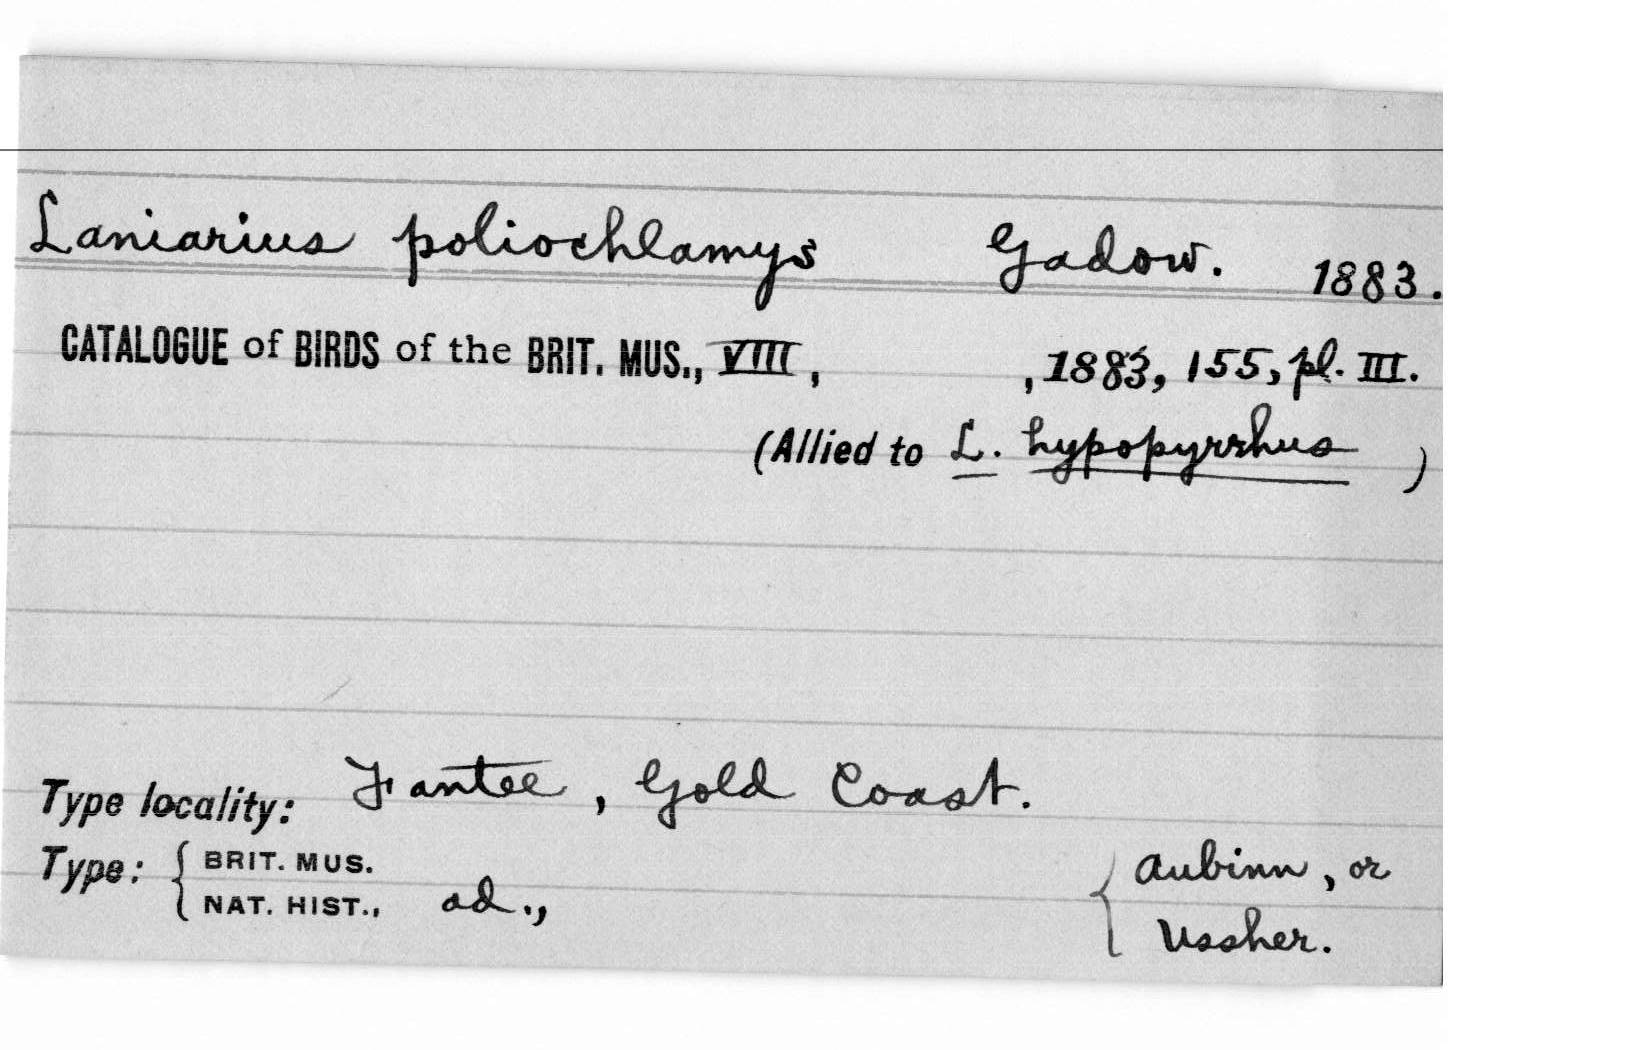 Laniarius poliochlamys Gadow. 1883.
CATALOGUE of BIRDS of the BRIT. MUS., VIII, , 1883, 155, pl. III.
(Allied to L. hypopyrrhus )
Type locality: Fantee, Gold Coast.
Type: { BRIT. MUS. { Aubinn, or
NAT. HIST., ad., Ussher.